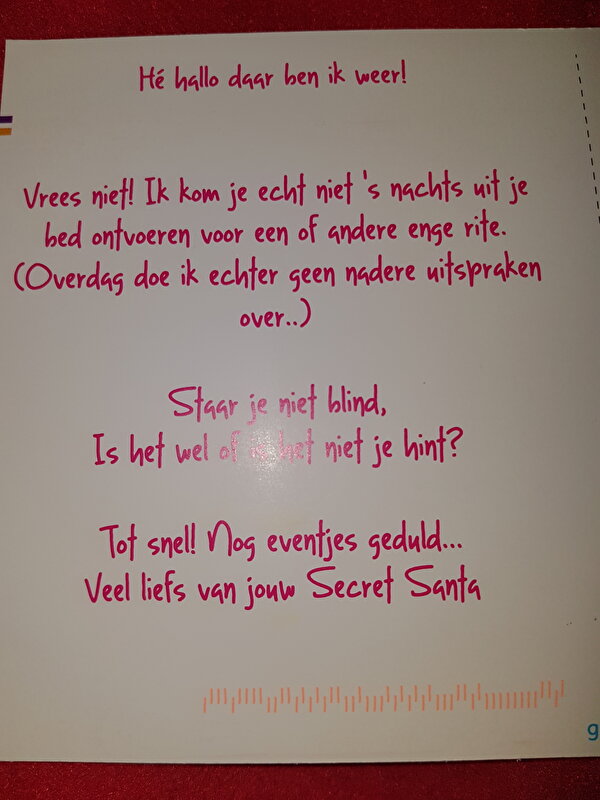 Hé hallo daar ben ik weer!
Vrees niet! Ik kom je echt niet 's nachts uit je
bed ontvoeren voor een of andere enge rite.
(Overdag doe ik echter geen nadere uitspraken
over..)
Staar je niet blind,
Is het wel of is het niet je hint?
Tot snel! Nog eventjes geduld...
Veel liefs van jouw Secret Santa
g